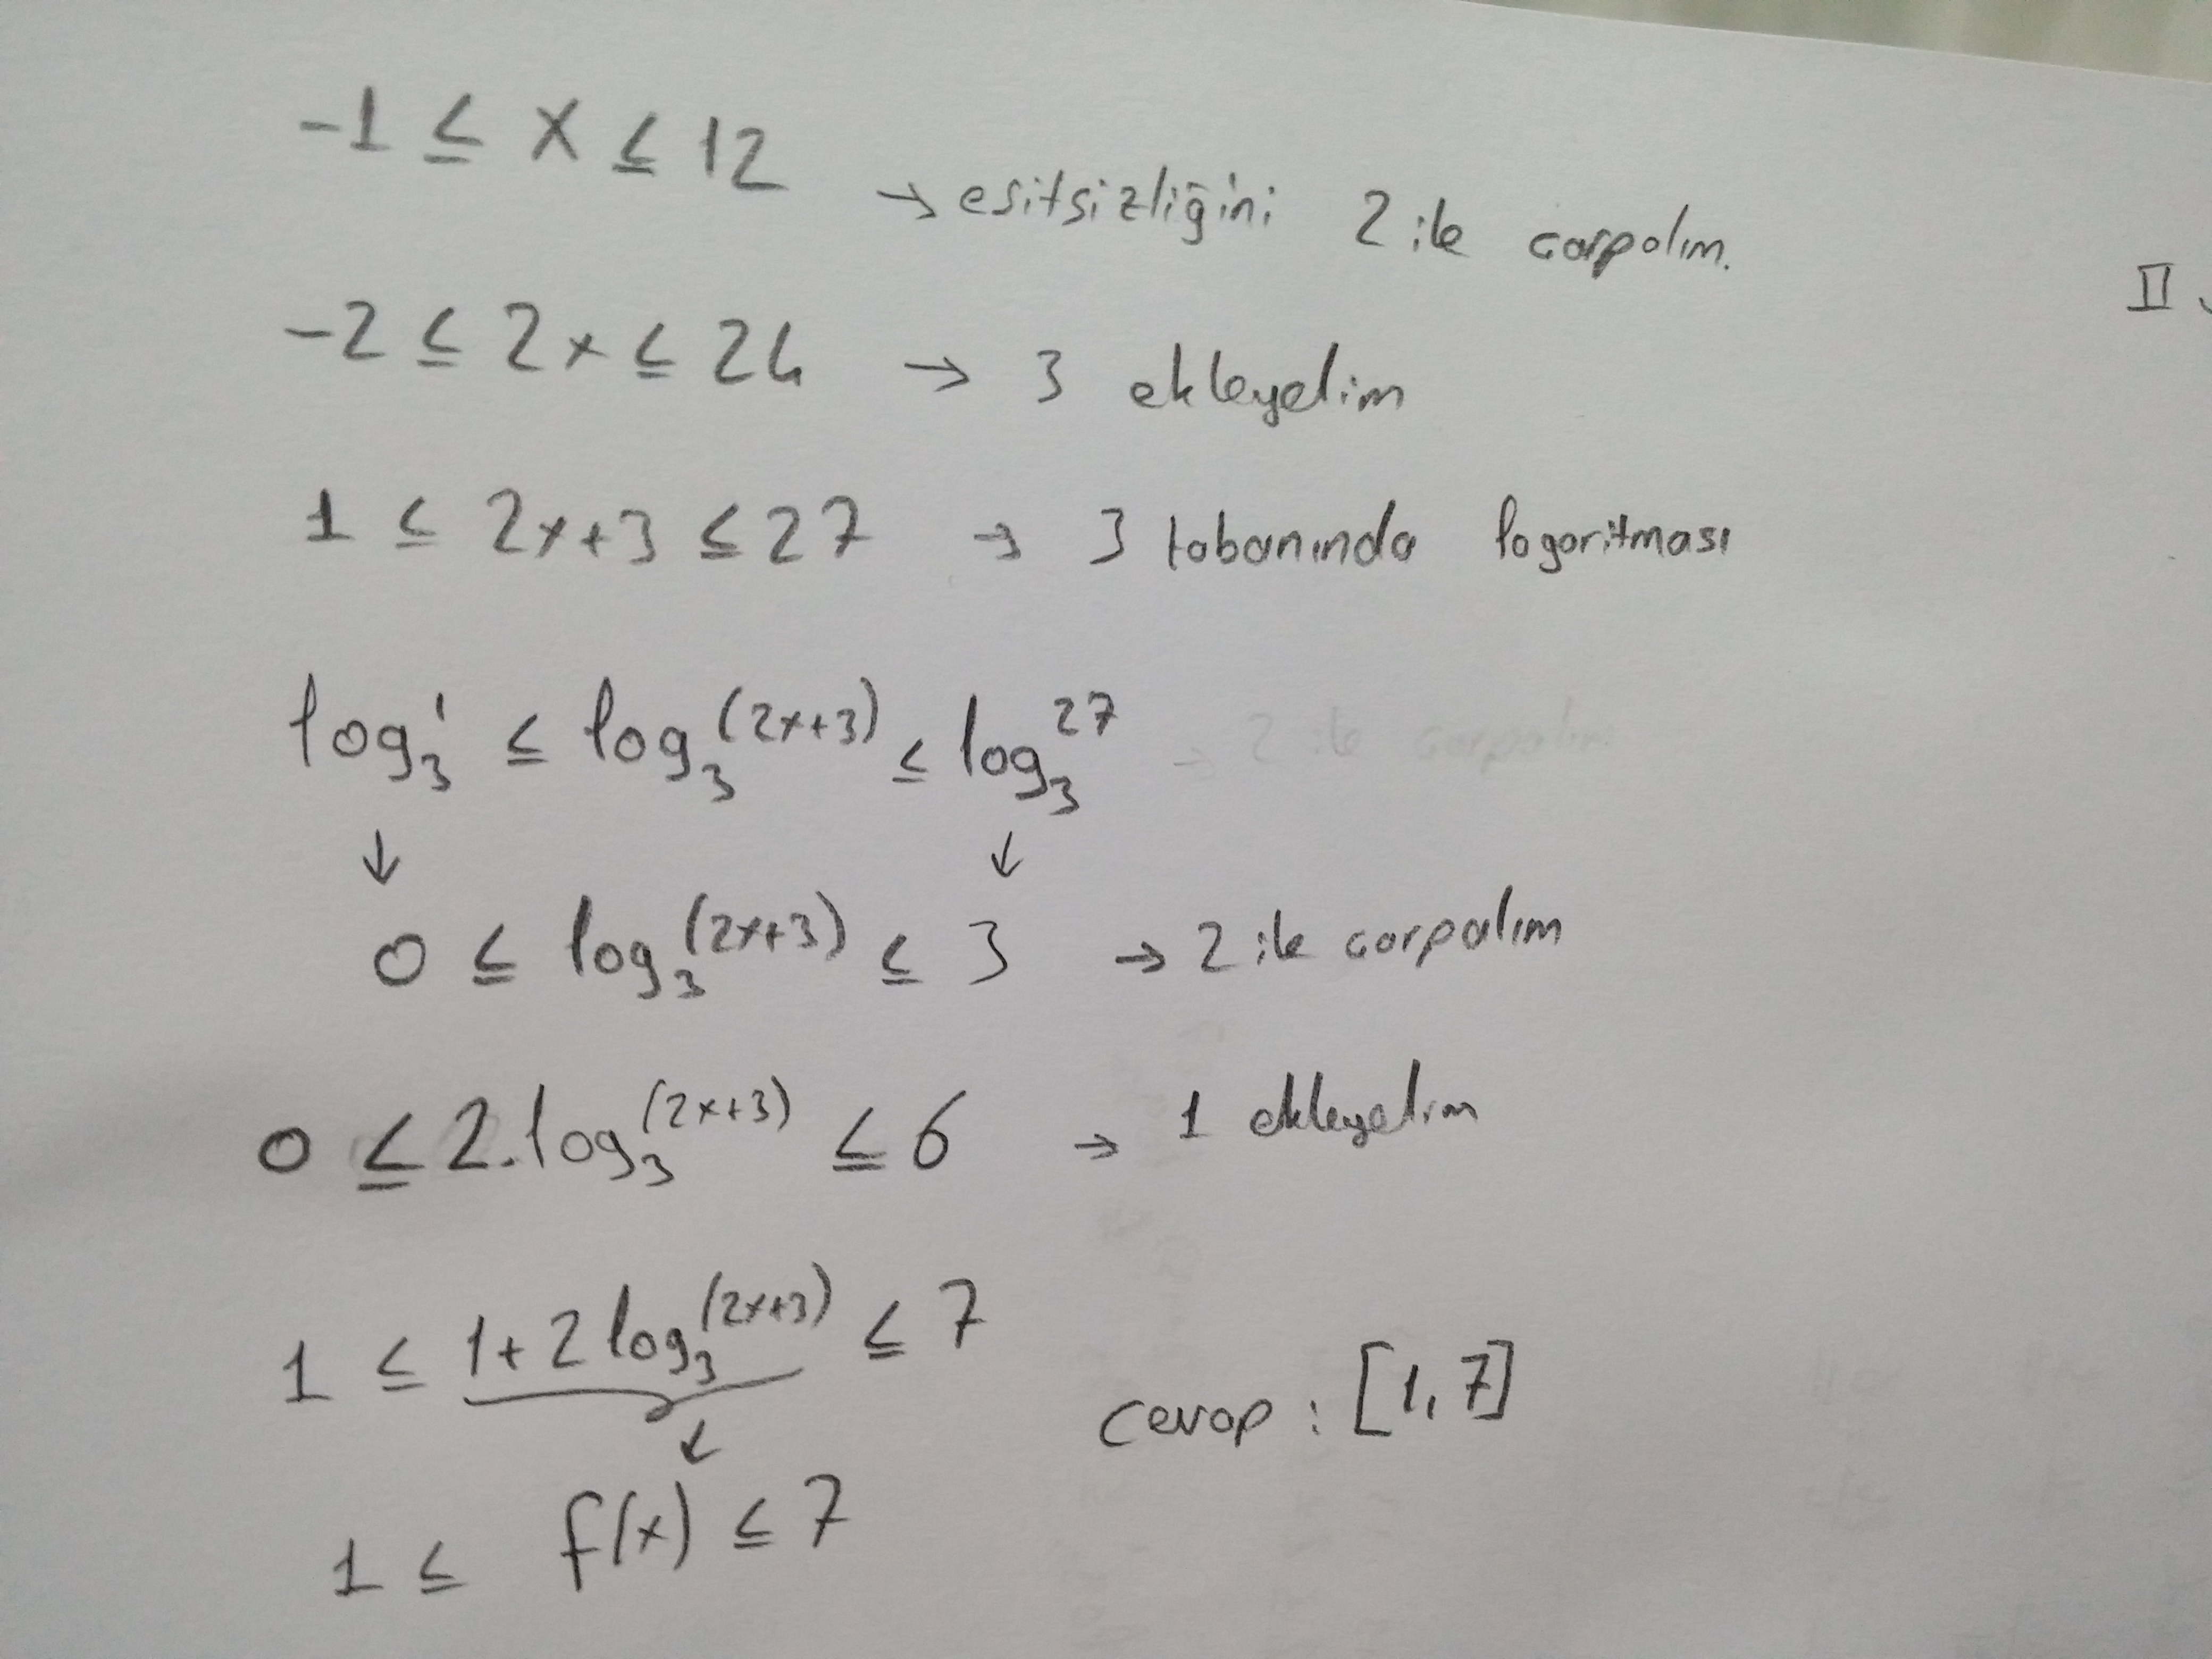 -1 ≤ x ≤ 12 → esitsizliğini 2 ile carpalım.
II.
-2 ≤ 2x ≤ 24 → 3 ekleyelim
1 ≤ 2x+3 ≤ 27 → 3 tabanında logaritması
log₃¹ ≤ log₃^(2x+3) ≤ log₃²⁷ → 2 ile carpalım
↓ ↓
0 ≤ log₃^(2x+3) ≤ 3 → 2 ile carpalım
0 ≤ 2.log₃^(2x+3) ≤ 6 → 1 ekleyelim
1 ≤ 1+2 log₃^(2x+3) ≤ 7
cevap : [1,7]
↓
1 ≤ f(x) ≤ 7